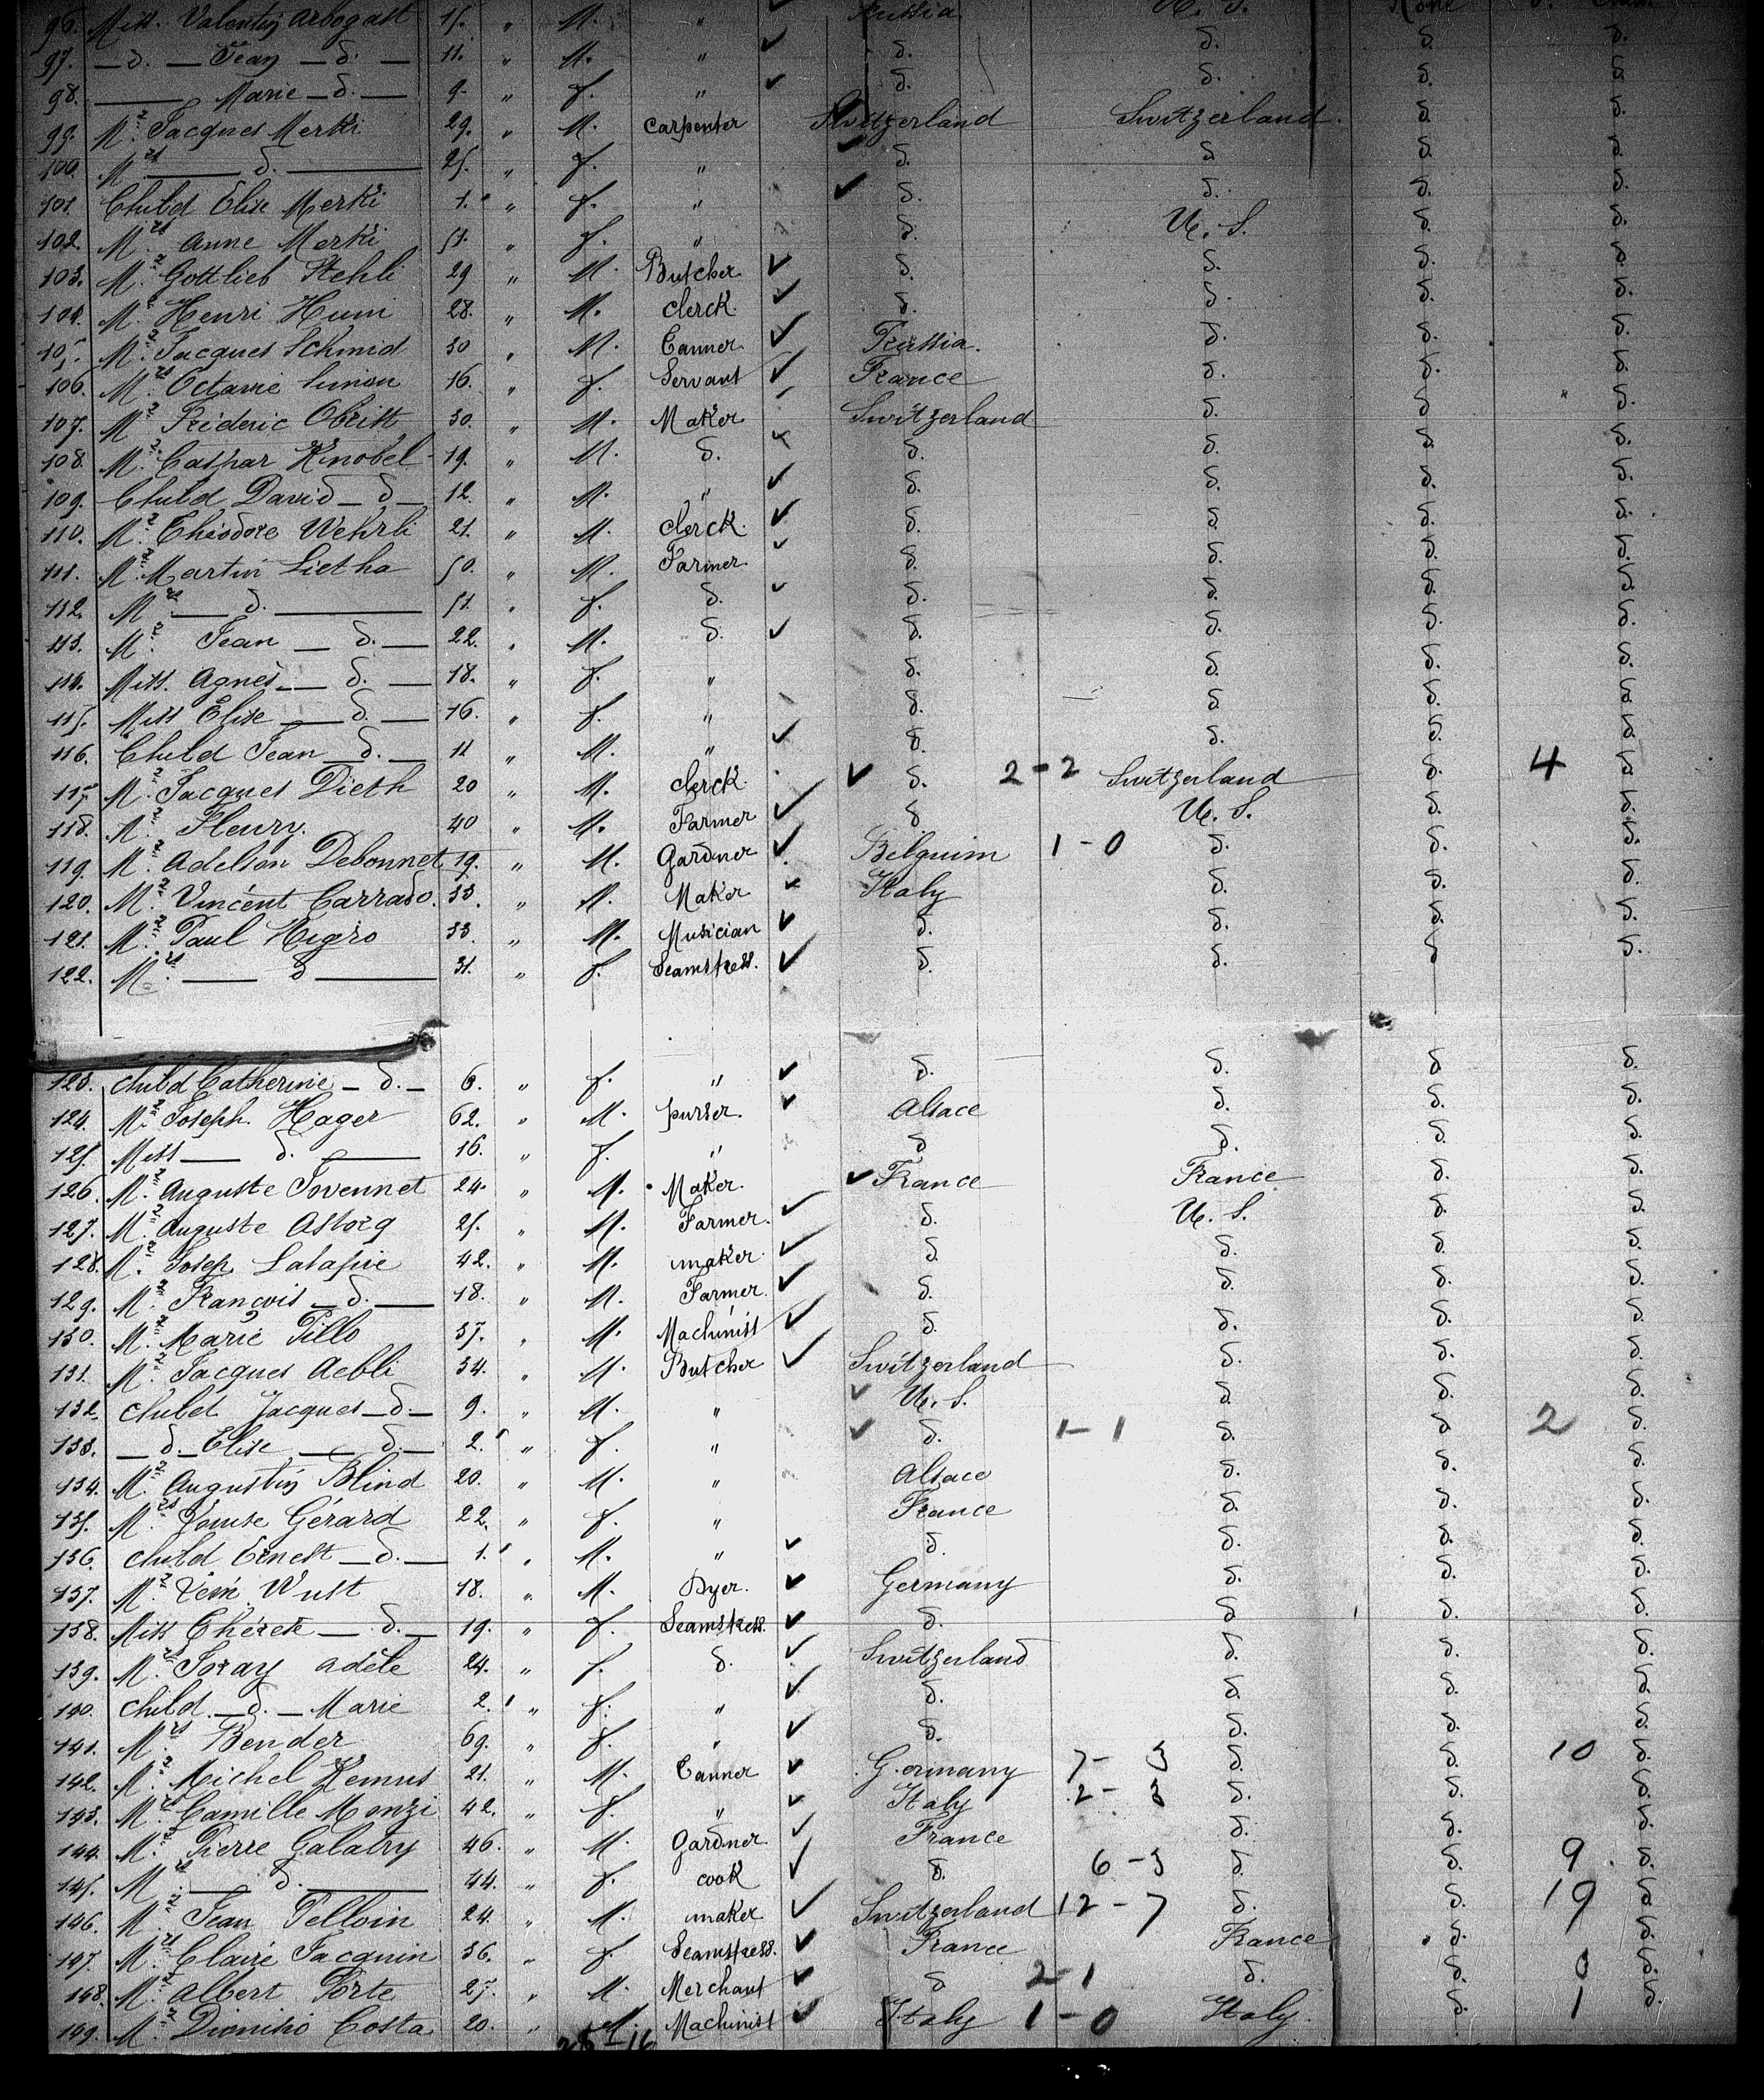 96. Miss. Valentin Arbogast 15. " M. " Russia U. S. None d.
97. — d. — Jean — d. — 11. " M. " d. d. d. d.
98. — Marie — d. — 9. " f. " d. d. d. d.
99. Mr. Jacques Merki 29. " M. Carpenter Switzerland Switzerland. d. d.
100. Mrs. — d. — 25. " f. " d. d. d. d.
101. Child Elise Merki 1. " f. " d. d. d. d.
102. Mrs. Anne Merki 51. " f. " d. U. S. d. d.
103. Mr. Gottlieb Stehli 29 " M. Butcher d. d. d. d.
104. Mr. Henri Huni 28. " M. clerck. d. d. d. d.
105. Mr. Jacques Schmid 30 " M. Tanner. Prussia. d. d. d.
106. Mrs. Octavie Simon 16. " f. Servant France d. d. d.
107. Mr. Fréderic Obrist 30. " M. Maker Switzerland d. d. d.
108. Mr. Caspar Knobel 19. " M. d. d. d. d. d.
109. Child David — d — 12. " M. " d. d. d. d.
110. Mr. Théodore Wehrli 21. " M. clerck. d. d. d. d.
111. Mr. Martin Lietha 50. " M. Farmer. d. d. d. d.
112. Mrs. — d. — 51. " f. d. d. d. d. d.
113. Mr. Jean — d. — 22. " M. d. d. d. d. d.
114. Miss. Agnès — d. — 18. " f. " d. d. d. d.
115. Miss Elise — d. — 16. " f. " d. d d. d.
116. Child Jean — d. — 11 " M. " d. d. d. d.
117. Mr. Jacques Dieth 20 " M. clerck. d. 2-2 Switzerland d. 4 d.
118. Mr. Fleury. 40 " M. Farmer d U. S. d. d.
119. Mr. Adelson Debonnet 19. " M. Gardner Belguim 1-0 d. d. d.
120. Mr. Vincent Carrado. 33. " M. Maker Italy d. d. d.
121. Mr. Paul Nigro 33. " M. Musician d. d. d. d.
122. Mrs. — d — 31. " f. Seamstress. d. d. d d.
123. Child Catherine — d. — 6. " f. " d. d. d d.
124. Mr. Joseph. Hager 62. " M. purser. Alsace d. d. d.
125. Miss — d. — 16. " f. " d d. d. d.
126. Mr. Auguste Jovennet 24. " M. Maker. France France d. d.
127. Mr. Auguste Astorg 25. " M. Farmer. d. U. S. d. d.
128. Mr. Josep. Latapie 42. " M. maker. d. d. d. d.
129. Mr. François — d. — 18. " M. Farmer. d. d. d. d.
130. Mr. Marie Pillo 37. " M. Machinist d. d. d. d.
131. Mr. Jacques Aebli 34. " M. Butcher Switzerland d. d. d.
132. Child Jacques — d. — 9. " M. " U. S. d. d. d.
133. — d. — Elise — d. — 2. " f. " d. 1-1 d. d 2 d.
134. Mr. Augustin Blind 20. " M. " Alsace d. d. d.
135. Mrs. Louise Gérard 22. " f. " France d. d. d.
136. Child Ernest — d. — 1. " M. " d. d. d. d.
137. Mr. Rémi Wust 18. " M. Dyer. Germany d. d. d.
138. Miss Thérèse — d. — 19. " f. Seamstress. d. d d. d.
139. Mrs. Joray Adèle 24. " f. d. Switzerland d. d. d.
140. Child. — d. — Marie 2. " f. " d. d. d. d.
141. Mrs. Bender 69. " f. " d. d. d. d.
142. Mr. Michel Remus 21. " M. Tanner Germany 7-3 d. d. 10 d.
143. Mrs. Camille Monzi 42. " f. " Italy 2-3 d. d. d.
144. Mr. Pierre Galatry 46. " M. Gardner. France d. d. d.
145. Mrs. — d. — 44. " f. cook d. 6-3 d. d. 9. d.
146. Mr. Jean Pelloin 24. " M. maker Switzerland 12-7 d. d. 19 d.
147. Mrs. Claire Jacquin 36. " f. Seamstress. France France d. d.
148. Mr. Albert Porte 27. " M. Merchant d 2-1 d. d. d.
149. Mr. Dionisio Costa 20. " M. Machinist Italy 1-0 Italy. d. 1 d.
28-16